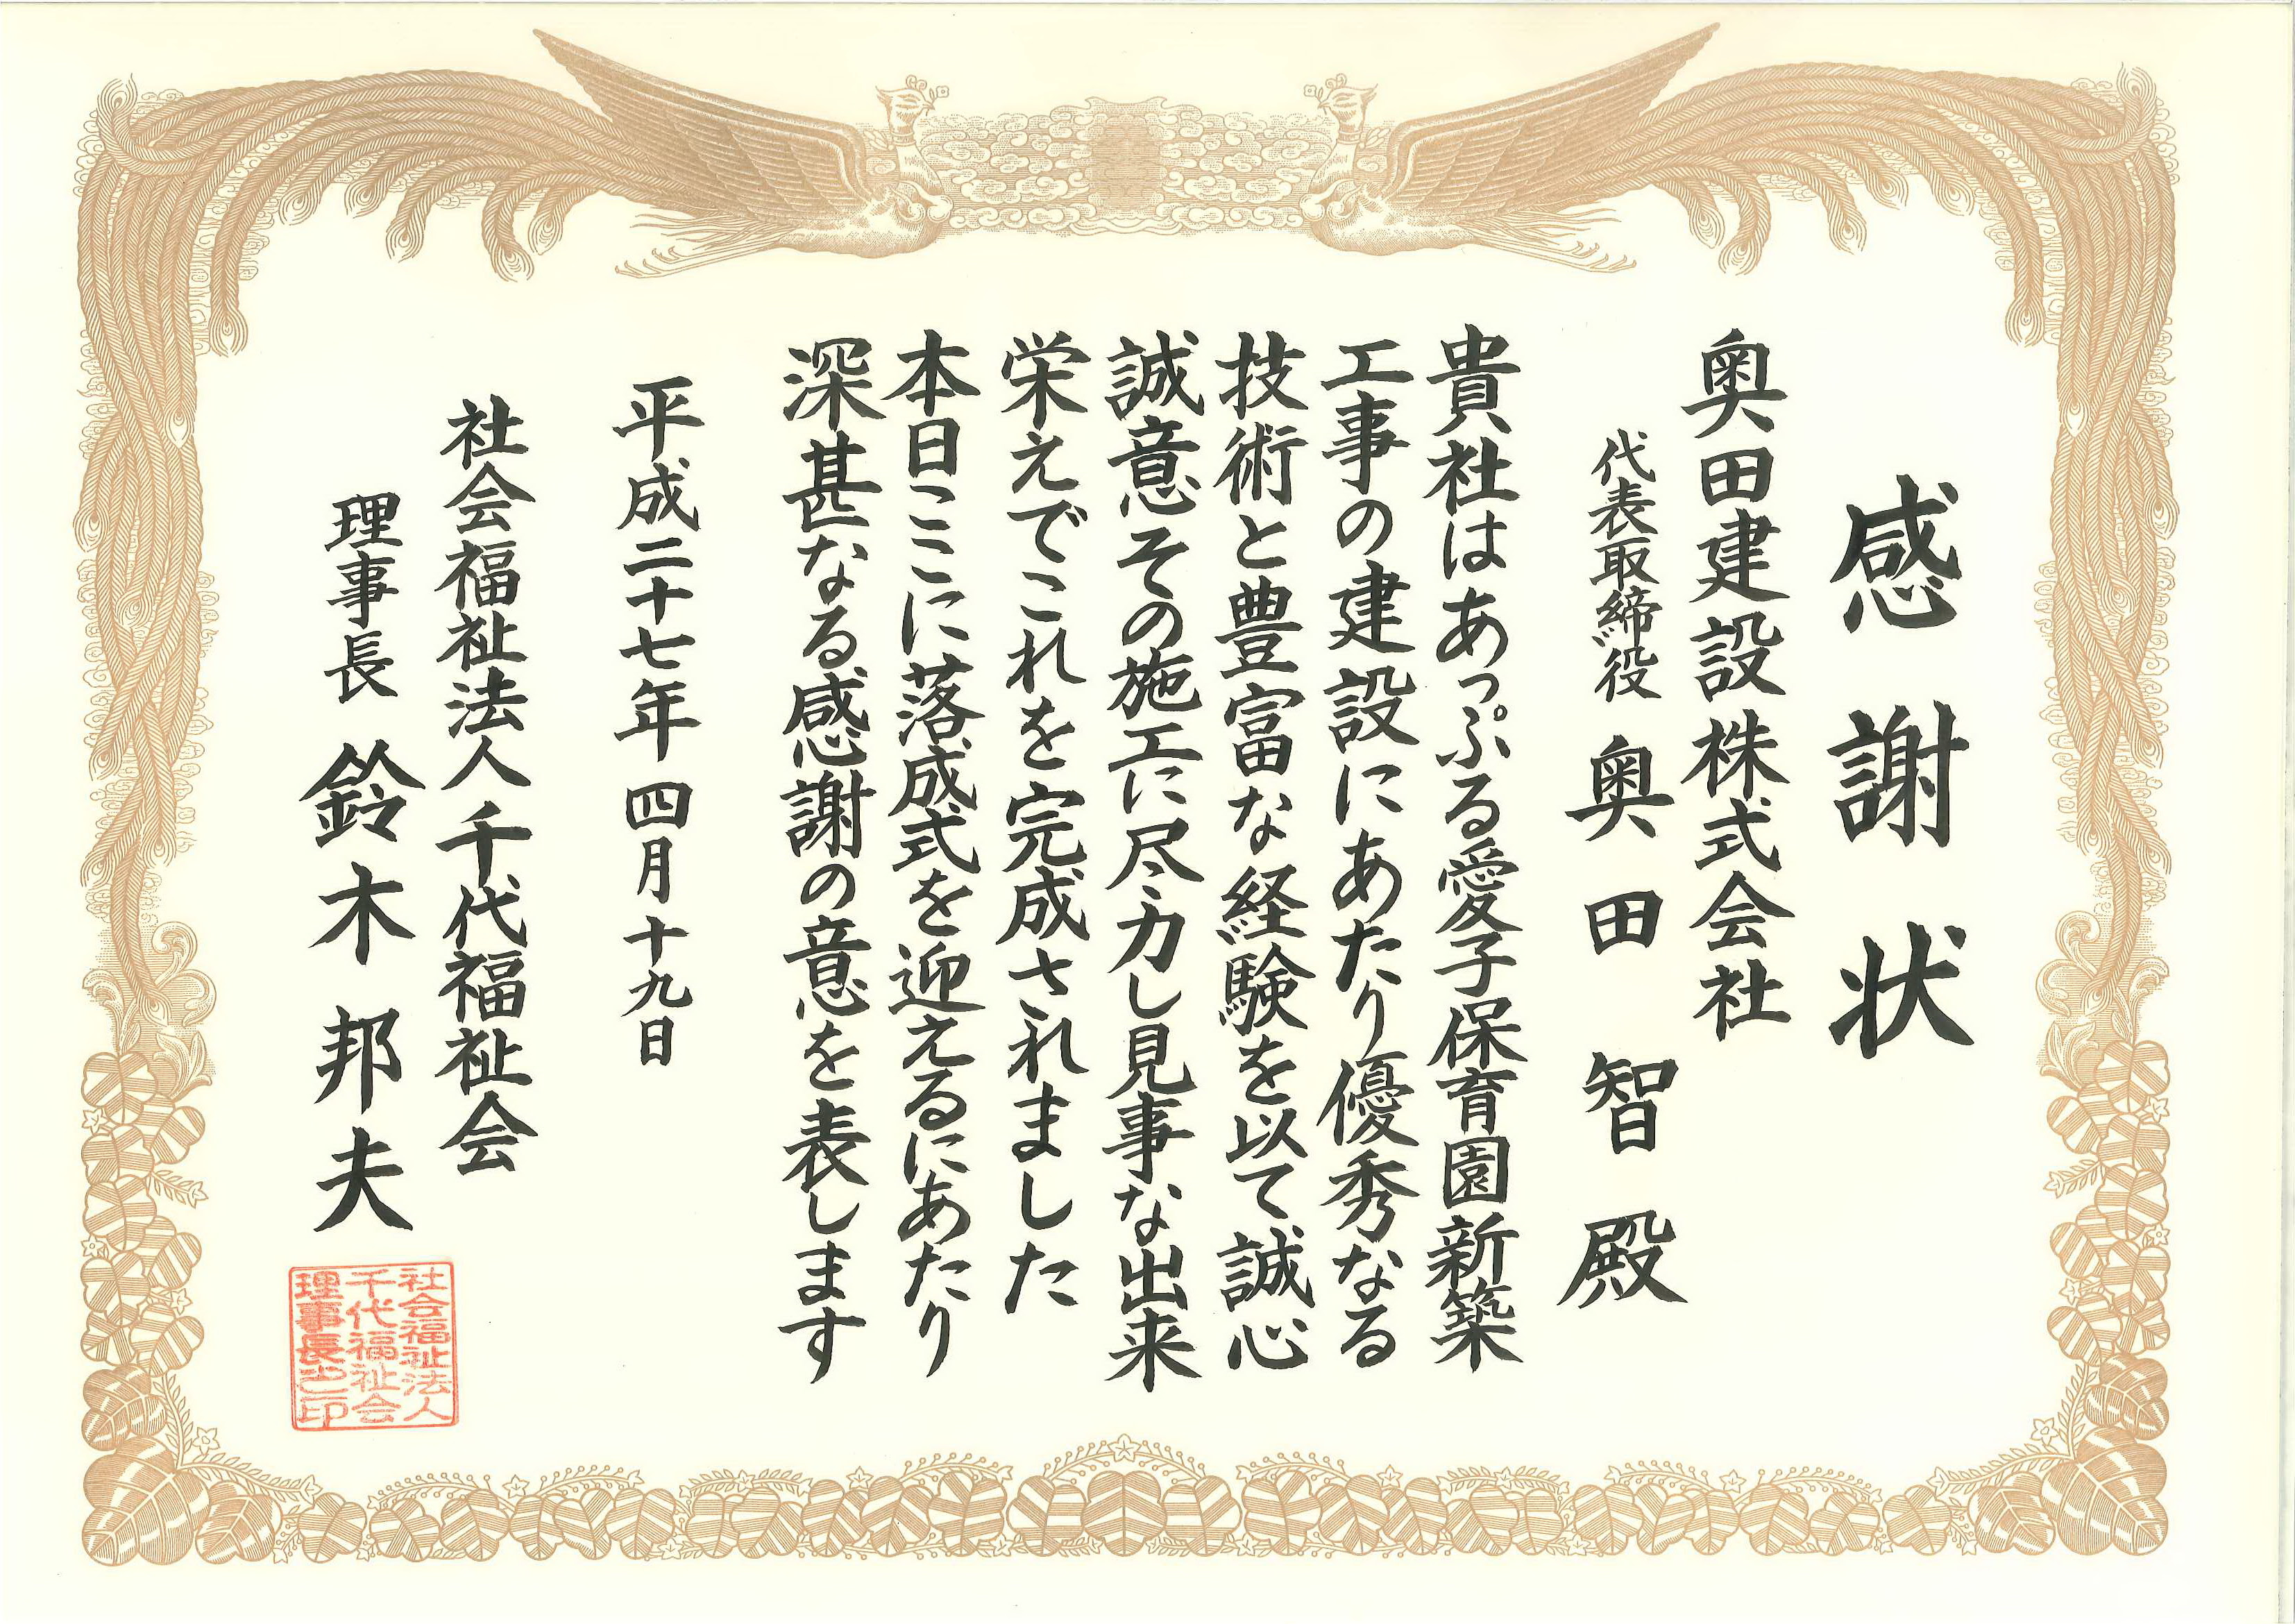 感謝状
奥田建設株式会社
代表取締役 奥田智殿
貴社はあっぷる愛子保育園新築
工事の建設にあたり優秀なる
技術と豊富な経験を以て誠心
誠意その施工に尽力し見事な出来
栄えでこれを完成されました
本日ここに落成式を迎えるにあたり
深甚なる感謝の意を表します
平成二十七年四月十九日
社会福祉法人千代福祉会
理事長 鈴木邦夫
社会福祉法人
千代福祉会
理事長之印